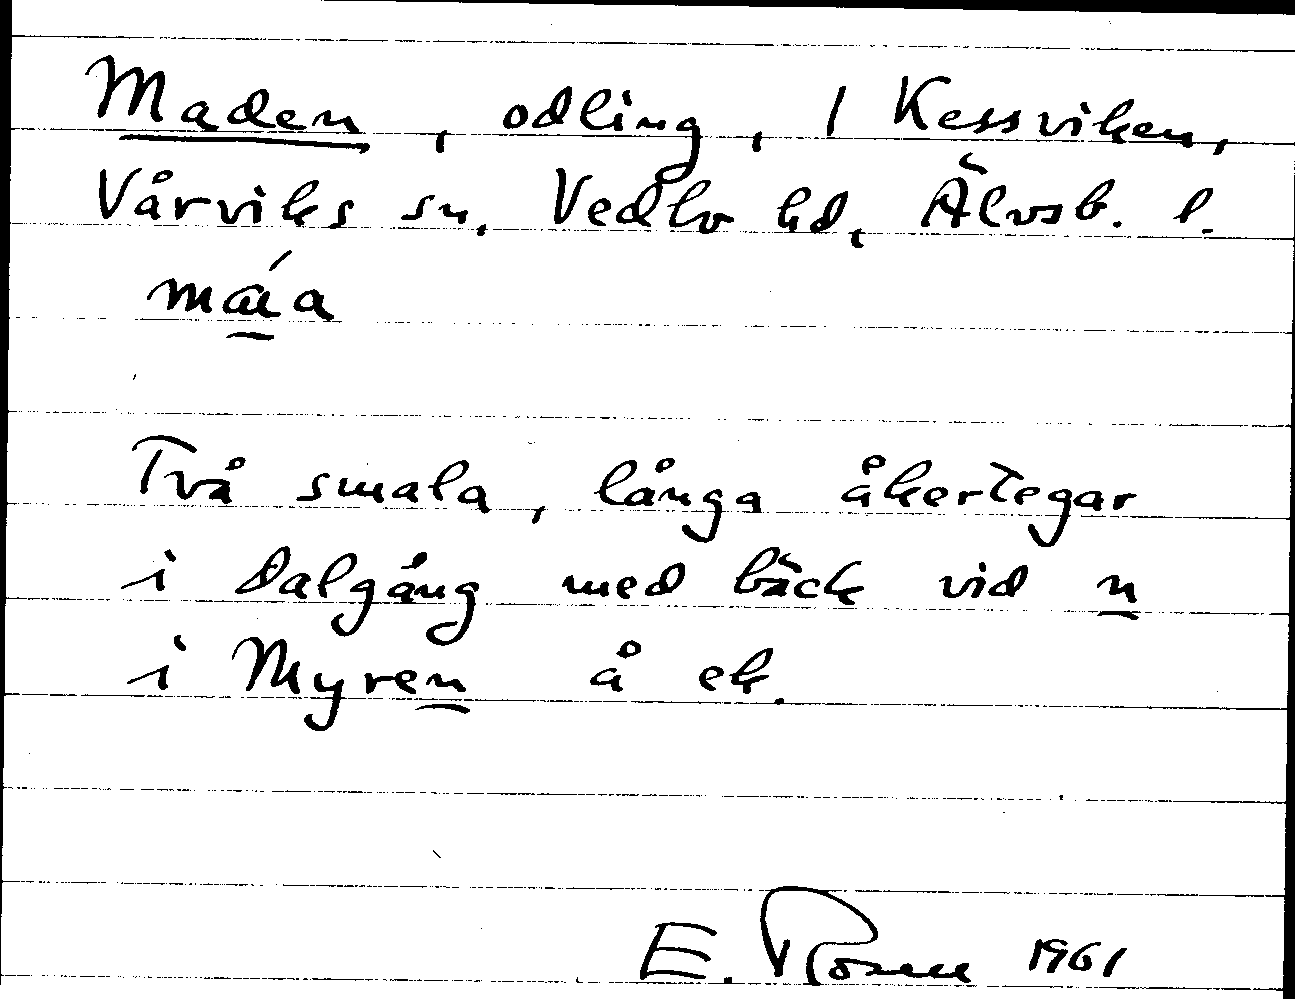 Maden, odling, 1 Kessviken,
Vårviks sn, Vedbo hd, Älvsb. l.
Två smala, långa åkertegar
i dalgång med bäck vid n
i Myren å ek.
E. Rosen 1961